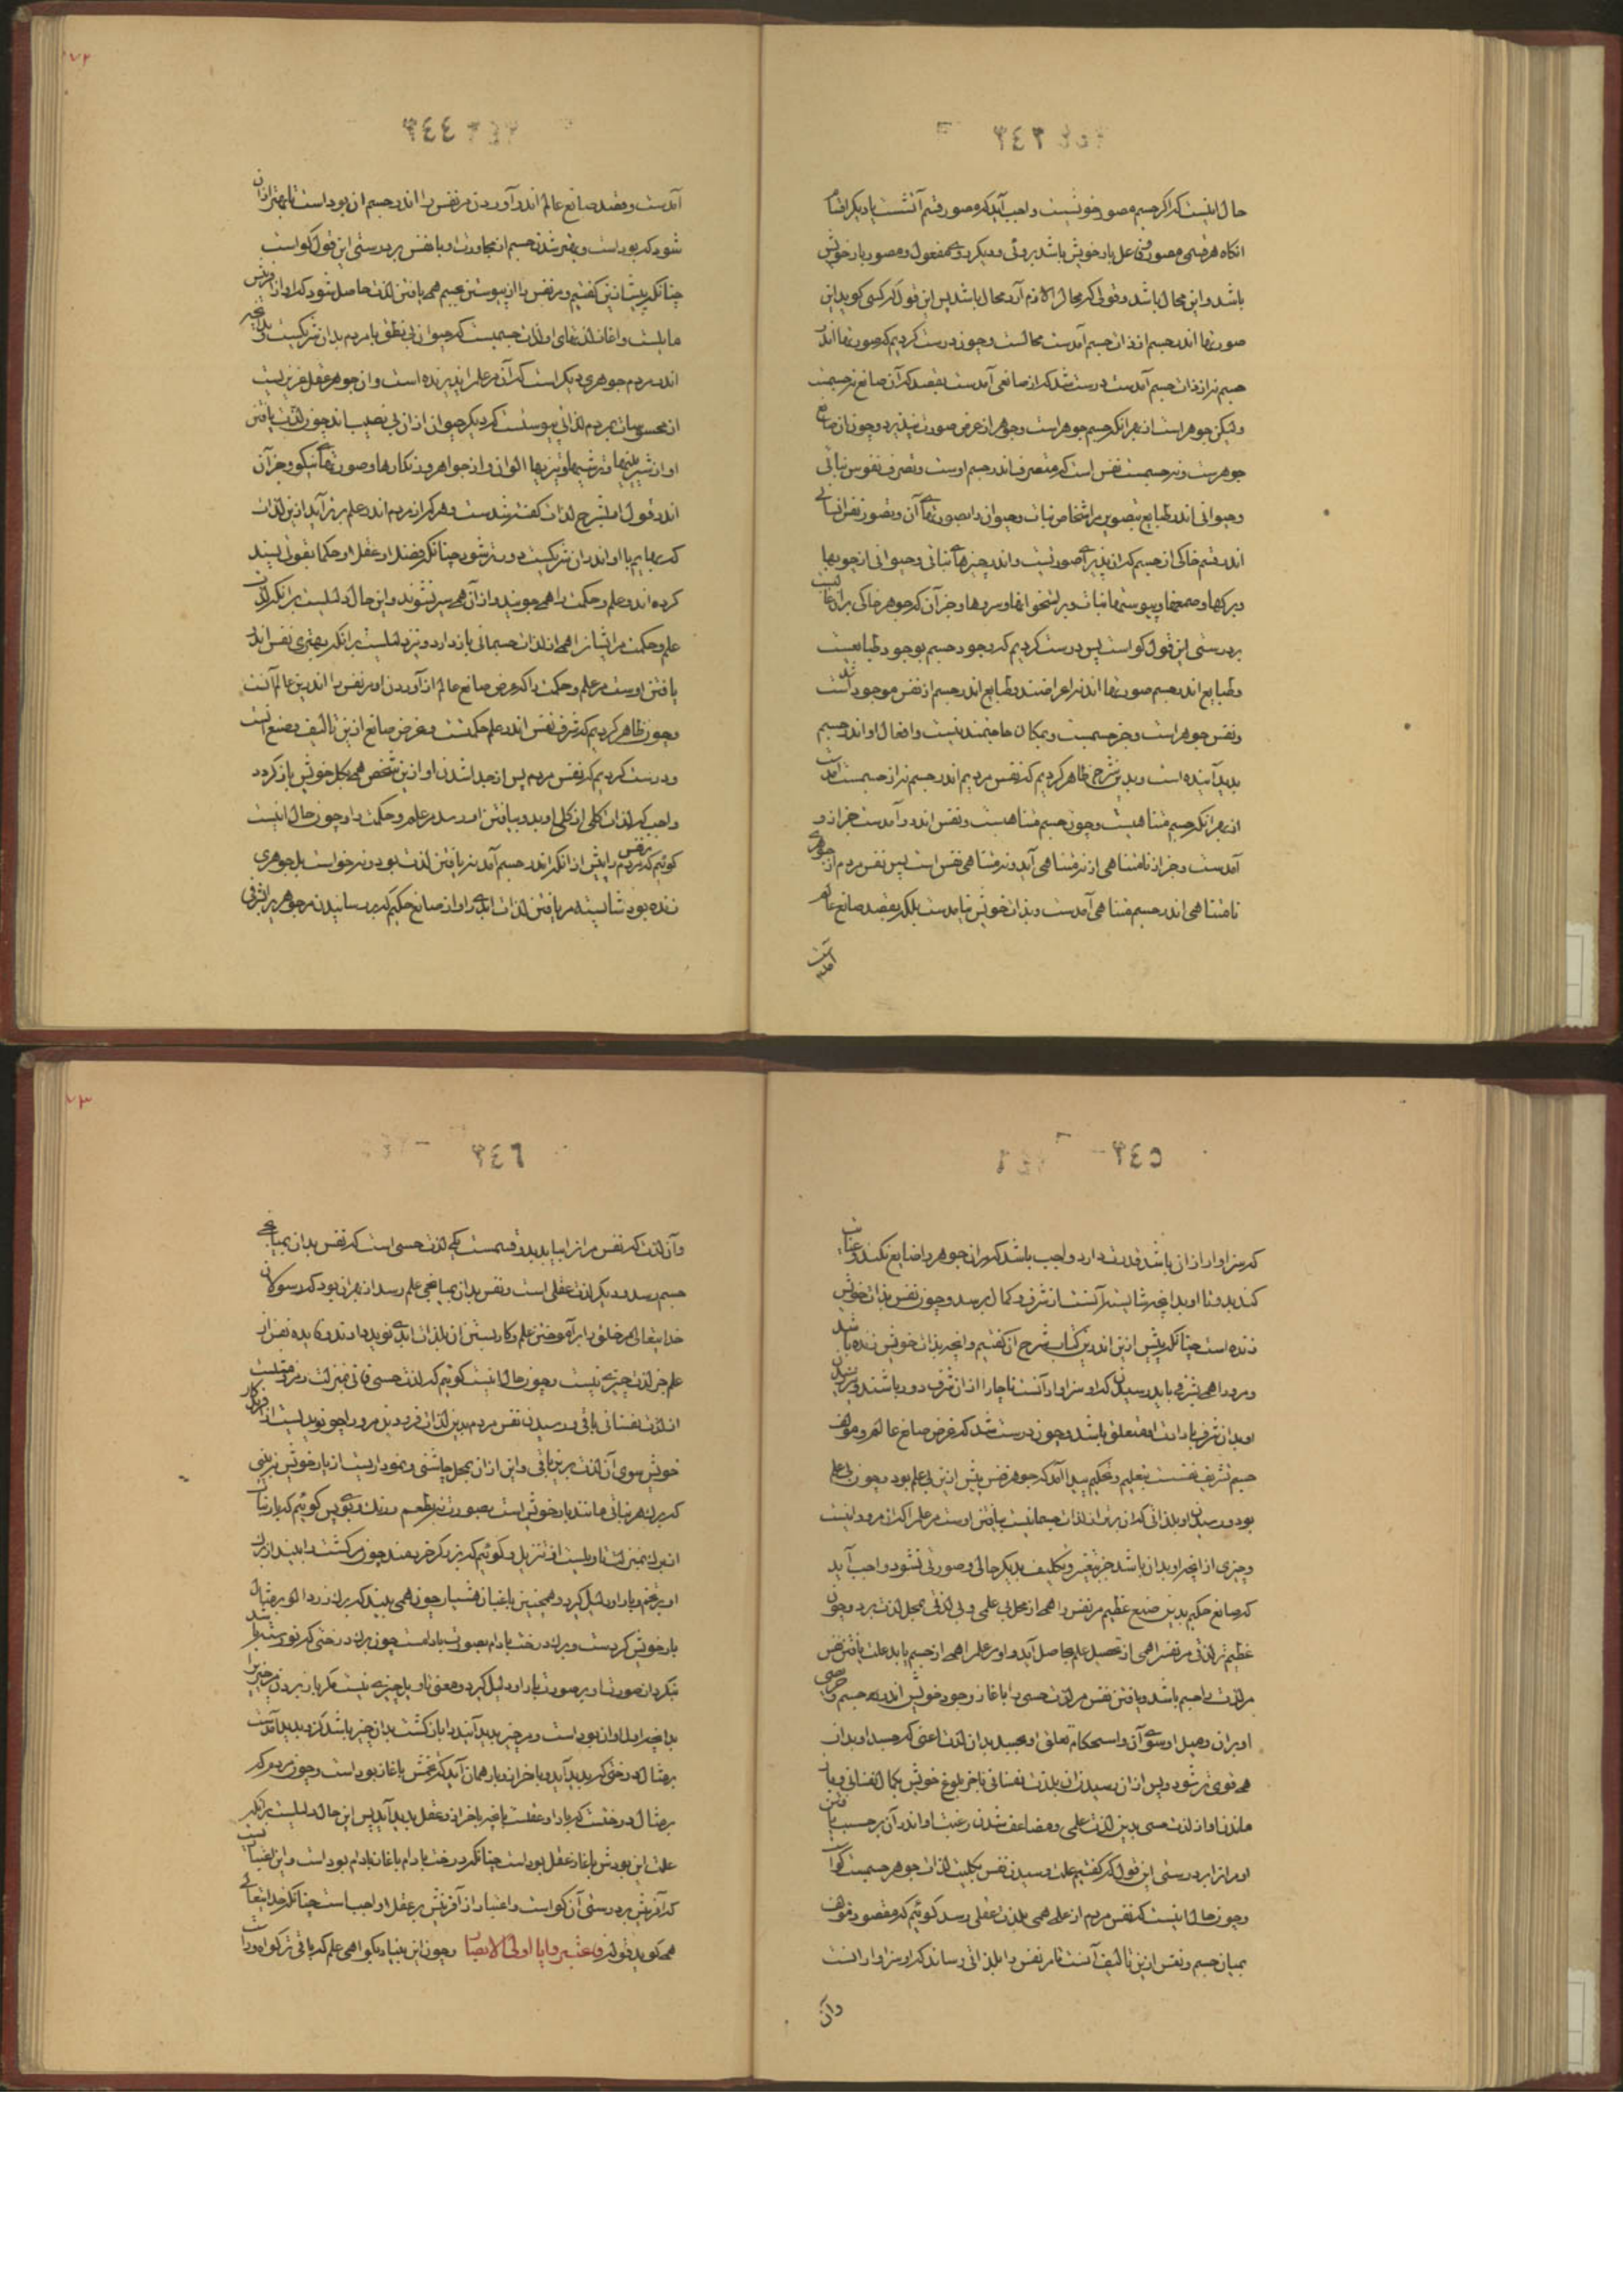 ٣٤٣
حال اینست که اگر جسم مصور خویشست واجب آید که مصور قسم آتشست یا دیگر اقسام
انگاه هر قسمی مصور و فاعل یار خویش باشد بروئی و دیگر روی مفعول و مصور یار خویش
باشد و این محال باشد و قولی که محال را لازم آرد محال باشد پس این قول که کسی گوید این
صورتها اندر جسم از ذات جسم آمدست محالست و چون درست کردیم که صورتها اندر
جسم نه از ذات جسم آمدست درست شد که از صانعی آمدست بقصد که آن صانع نه جسمست
ولیکن جوهر است از بهر انکه جسم جوهر است و جوهر از عرض صورت نپذیرد و چون ان صانع
جوهرست و نه جسمست نفس است که متصرف اندر جسم اوست و تصرف نفوس نباتی
و حیوانی اندر طبایع بتصویر مر اشخاص نبات و حیوان را بصورتهای آن و تصور نفس انسانی
اندر قسم خاکی از جسم که ان پذیرای صورتست و اندر چیزهای نباتی و حیوانی از چوبها
و برگها و صمغها و پوستها نبات و بر استخوانها و سروها و جز آن که جوهر خاکی بران غالبست
بر درستی این قول گواست پس درست کردیم که وجود جسم بوجود طبایعست
و طبایع اندر جسم صورتها اند نه اعراضند و طبایع اندر جسم از نفس موجود شده است
و نفس جوهر است و جز جسمست و بمکان حاجتمند نیست و افعال او اندر جسم
پدید آینده است و بدین شرح ظاهر کردیم که نفس مردم اندر جسم نه از جسمست آمدست
از بهر انکه جسم متناهیست و چون جسم متناهیست و نفس اندرو آمدست جز از و
آمدست و جز از نامتناهی از نه متناهی آید و نه متناهی نفس است پس نفس مردم از جوهری
نامتناهی اندر جسم متناهی آمدست و بذات خویش نیامدست بلکه بقصد صانع عالم
آمدست
٣٤٤
آمدست و قصد صانع عالم اندر آوردن مر نفس را اندر جسم ان بوداست تا بهتر از ان
شود که بوداست و بهتر شدن جسم از مجاورت او با نفس بر درستی این قول گواست
چنانکه پیش ازین گفتیم و مر نفس را از پیوستن بجسم همی یافتن لذت حاصل شود که او از آفرینش
مایلست و اغاز لذتهای او لذت حسیست که حیوان بی نطق با مردم بدان شریکست و بدانچه
اندر مردم جوهری دیگر است که آن مر علم را پذیرنده است و ان جوهر عقل غریزیست
از محسوسات بمردم لذاتی پیوستست که دیگر حیوان از ان بی نصیب اند چون لذت یافتن
او از شیرینیها و ترشیها و تیزیها الوان و از جواهر و زنگارها و صورتهای نیکو و جز آن
اندر قول ما بشرح لذات گفته شدست و هر که از مردم اندر علم برتر آید ازین لذات
که بهایم با او اندران شریکست دورتر شود چنانکه فضلا و عقلا و حکما بقوتی بسند
کرده اند و علم و حکمت را همی جویند و از آن همی سیر نشوند و این حال دلیلست بر انکه لذت
علم و حکمت مر ایشان را همی از لذات جسمانی باز دارد و نیز دلیلست بر انکه بهتری نفس اندر
یافتن اوست مر علم و حکمت را که غرض صانع عالم از آوردن او مر نفس را اندرین عالم آنست
و چون ظاهر کردیم که شرف نفس اندر علم حکمتست و غرض صانع ازین تالیف و صنع آنست
و درست کردیم که نفس مردم پس از جدا شدن او ازین شخص همی بکل خویش باز گردد
واجب که لذات کلی از کلی او بدو بیافتن او رسد مر علم و حکمت را و چون حال اینست
گوئیم که نفس مردم را پیش از انکه اندر جسم آمد نه یافتن لذت بود و نه خواست بل جوهری
زنده بود شایسته مر یافتن لذات ابدی را و از صانع حکیم که بر رسانیدن مر جوهر را بشرفی
٣٤٥
که سزاوار ازان باشد قدرت دارد واجب باشد که مران جوهر را ضایع نکند و عنایت
کند بدو تا او بدانچه شایسته آنست از شرف و کمال برسد و چون نفس بذات خویش
زنده است چنانکه پیش ازین اندرین کتاب شرح ان گفتیم و انچه بذات خویش زنده باشد
و مرو را همی بشرفی باید رسیدن که او سزاوار آنست ناچار از ان شرف دور باشد و رسیدن
او بدان شرف بارادت او متعلق باشد و چون درست شد که غرض صانع عالم و مولف
جسم تشریف نفسست بتعلیم و تحکیم پیدا آمد که جوهر نفس پیش ازین بی علم بود و چون بی علم
بود و رسیدن او بلذاتی که ان برتر از لذات جسمانیست بیافتن اوست مر علم را که ان مر او را نیست
و چیزی از انچه او بدان باشد جز بتغییر و تکلیف بدیگر حالی و صورتی نشود واجب آید
که صانع حکیم بدین صنع عظیم مر نفس را همی از محل بی علمی و بی لذتی بمحل لذت برد و چون
عظیم تر لذتی مر نفس را همی از تحصیل علم حاصل آید و او مر علم را همی از جسم یابد علت یافتن نفس
مر لذت را جسم باشد و یافتن نفس مر لذت حسی را باغاز وجود خویش اندر جسم و حرصی
او بران و میل او سوی آن و استحکام تعلق او بجسد بدان لذت اعنی که جسد او بدان
همی قوی تر شود و پس از ان رسیدن ان بلذت نفسانی باخر بلوغ خویش بکمال نفسانی و باز
ماندن او از لذت حسی بدین لذت علمی و مضاعف شدن رغبت او اندر آن بر حسب یافتن
او مرانرا بر درستی این قول که گفتیم علت رسیدن نفس بکلیت لذات جوهر جسمست گوا
و چون حال اینست که نفس مردم از علم همی بلذت عقلی رسد گوئیم که مقصود مولف
بمیان جسم و نفس ازین تالیف آنست تا مر نفس را بلذاتی رساند که او سزاوار انست
وان
٣٤٦
وآن لذت که نفس مرانرا بیابد بدو قسمست یکی لذت حسی است که نفس بدان بمیانجی
جسم رسد و دیگر لذت عقلی است و نفس بدان بمیانجی علم رسد از بهر ان بود که رسولان
خدایتعالی مر خلق را بر آموختن علم و کار بستن ان بلذات ابدی نوید دادند و فایده نفس از
علم جز لذت چیزی نیست و چون حال اینست گوئیم که لذت حسی فانی بمنزلت رمز و مثلست
از لذت نفسانی باقی و رسیدن نفس مردم بدین لذات فرودین مرو را چون نویدیست از آفریدگار
خویش سوی آن لذت برین باقی و این از ان بمحل چاشنی و نموداریست از یار خویش نه بینی
که برگ هر نباتی مانند بار خویش است بصورت نه بطعم و رنگ و بوی پس گوئیم که بار نبات
از برگ بمنزلت تاویلست از تنزیل و گوئیم که برزگر خردمند چون مر کشت را ببیند از برگ
او بر تخم و بار او دلیل گیرد و همچنین باغبان هشیار چون همی بیند که برگ زرد آلو بر مثال
بار خویش گردست و برگ درخت بادام بصورت بادامست چون برگ درختی که نو رسته باشد
بنگرد از صورت او بر صورت بار او دلیل گیرد و معنی تاویل چیزی نیست مگر باز بردن مر چیزرا
بدانچه اول او ان بوداست و مر چیز پدید آینده را باز گشت بدان چیز باشد کزو پدید آمدست
بر مثال درختی که پدید آید و باخر ازو بار همان آید که تخمش باغاز بوداست و چون مردم که
بر مثال درختست که بار او عقلست باخر ازو عقل پدید آید پس این حال دلیلست بر انکه
علت این بودش باغاز عقل بوداست چنانکه درخت بادام باغاز بادام بوداست و این اعتباریست
که آفرینش بر درستی آن گواست و اعتبار از آفرینش بر عقلا واجب است چنانکه خدایتعالی
همی گوید قوله فاعتبروا یا اولی الابصار و چون این بنیاد بگواهی علم که باقی تر گواهی او را